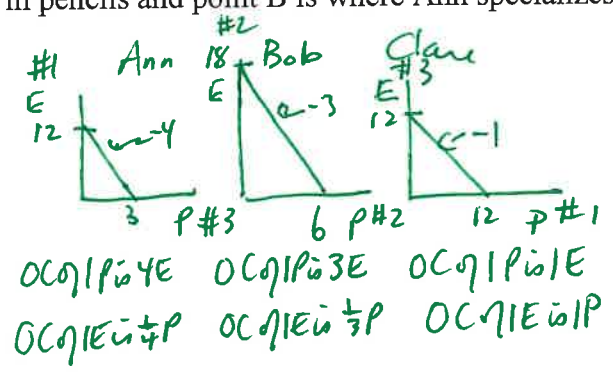 in pencils and point B is where Ann specializes
#1 Ann
E
12
-4
3 P #3
#2
18 Bob
E
-3
6 P #2
Clare
#3
E
12
-1
12 P #1
OC of 1P is 4E OC of 1P is 3E OC of 1P is 1E
OC of 1E is 1/4 P OC of 1E is 1/3 P OC of 1E is 1P